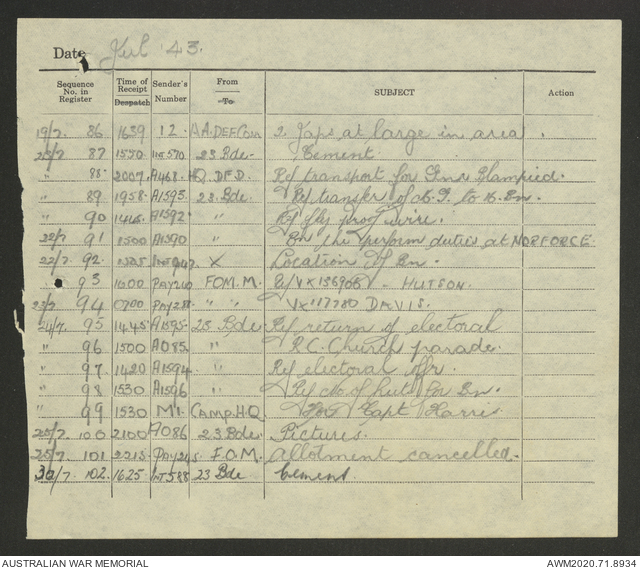 Date Jul '43.
Sequence No. in Register Time of Receipt Despatch Sender's Number From To SUBJECT Action
19/7. 86 1639 12. A.A. DEF Com 2 Japs at large in area.
20/7 87 1550 INT570 23 Bde. Cement
" 88 2007 A468. HQ. D.F.D. Ref transport for
" 89 1958 A1593 23. Bde. Ref transfer of to Bn.
" 90 A1592 " Ref wire.
22/7 91 1500 A1590 " perform duties at NORFORCE
22/7 92. 1525 X Location of Bn.
" 93 1600 PAY240 F.O.M.M. VX136906 - HUTSON.
23/7 94 0700 " " VX117780 DAVIS.
24/7. 95 1445 A1595 23 Bde Ref return of electoral
" 96 1500 A085 " R.C. Church parade.
" 97 1420 A1594 " Ref electoral offr.
" 98 1530 A1596 " Ref No. of huts for Bn.
" 99 1530 M1. CAMP. H.Q. Capt Harris
25/7. 100 2100 A086 23 Bde. Pictures.
25/7. 101 2215 F.O.M. Allotment cancelled.
30/7. 102. 1625 INT588 23 Bde Cement.
AUSTRALIAN WAR MEMORIAL AWM2020.71.8934